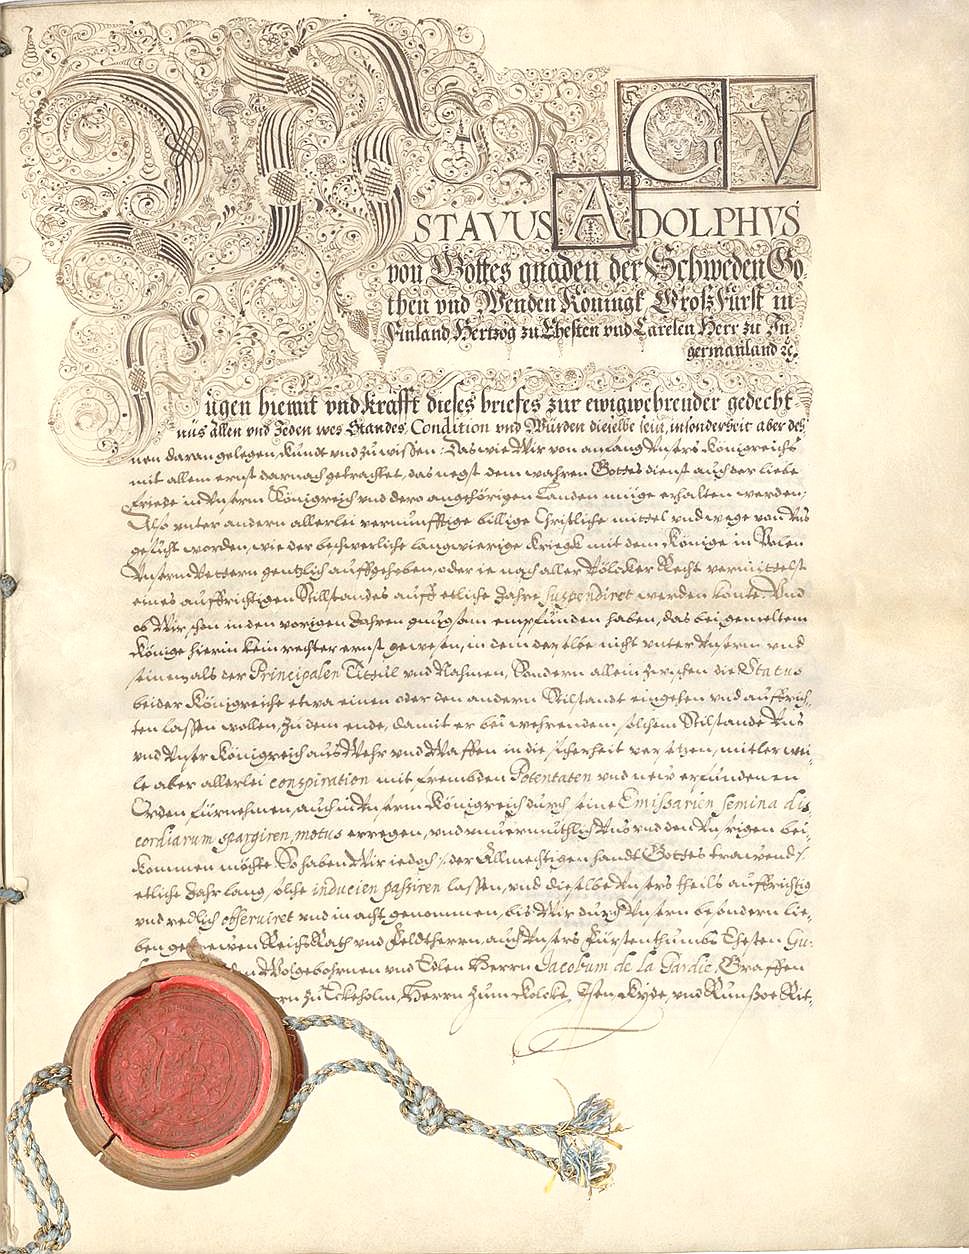 Wir GV
STAVUS ADOLPHVS
von Gottes gnaden der Schweden Go
then vnd Wenden Köningk GroßFürst in
Finland Hertzog zu Ehesten vnd Carelen Herr zu In
germanland ꝛc.
Fügen hiemit vnd krafft dieses briefes zur ewigwehrender gedecht
nüs allen vnd Jeden wes Standes Condition vnd Würden dieselbe sein, insonderheit aber de
nen daran gelegen, kundt vnd zu wissen: Das wie Wir von anfang Unsers Königreichs
mit allem ernst darnach getrachtet, das negst dem wahren Gottes dienst auch der liebe
friede in Unserm Königreich vnd dero angehörigen Landen müge erhalten werden;
Also vnter andern allerlei vernunfftige billige Christliche mittel vnd wege von Uns
gesucht worden, wie der beschwerliche langwierige Kriegk mit dem Könige in Polen
Unserm Vettern gentzlich auffgehoben, oder ie nach aller Völcker Recht vermittelst
eines auffrichtigen Stillstandes auff etliche Jahre suspendiret werden könte. Und
ob Wir schon in den vorigen Jahren gnugsam empfunden haben, das bei gemeltem
Könige hierin kein rechter ernst gewesen, in dem derselbe nicht vnter Unserm vnd
seinem als der Principalen Tittul vnd Nahmen, Sondern allein zwischen die Status
beider Königreiche etwa einen oder den andern Stilstandt eingehen vnd auffrich,
ten lassen wollen, zu dem ende, damit er bei wehrendem solchem Stilstande Uns
vnd Unser Königreich aus Wehr vnd Waffen in die sicherheit versetzen, mitler wei,
le aber allerlei conspiration mit frembden Potentaten vnd new erfundenen
Orden fürnehmen, auch in Unserm Königreich durch seine Emissarien semina dis
cordiarum spargiren, motus erregen, vnd vnuermuthlich Uns vnd den Unsrigen bei,
kommen möchte So haben Wir iedoch /: der Allmechtigen handt Gottes trawend :/
etliche Jahr lang, solche inducien passiren lassen, vnd dieselbe Unsers theils auffrichtig
vnd redlich obseruiret vnd in acht genommen, bis Wir durch Unsern besondern lie,
ben getrewen Reichs Rath vnd Feldtherrn, auch Unsers Fürstenthumbs Ehesten Gu,
den Wolgebohrnen vnd Edlen Herrn Jacobum de la Gardie, Graffen
zu Leckoholm, Herrn zum Kolcke, vnd Runsoe Rit,